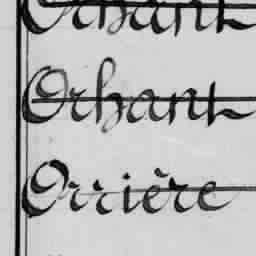 Orhant
Orhant
Orrière